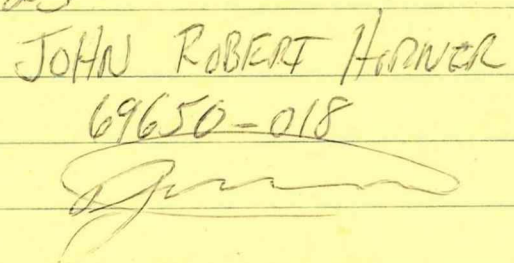 JOHN ROBERT HORNER
69650-018